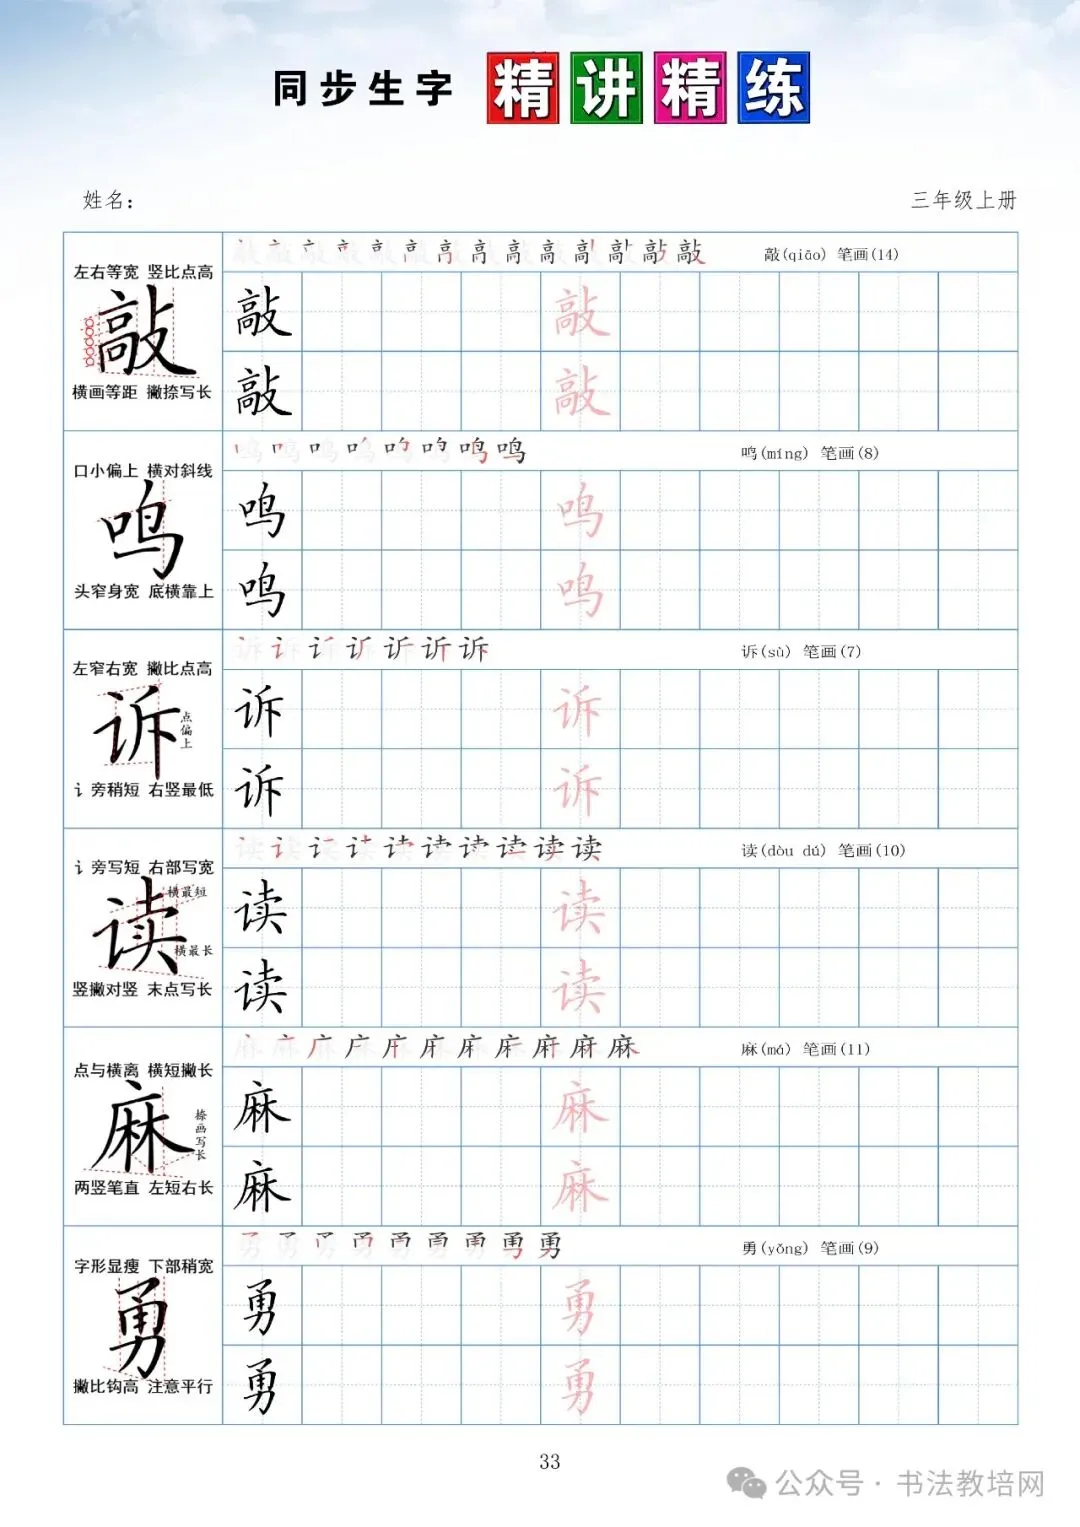 同步生字 精讲精练
姓名：
三年级上册
敲(qiāo) 笔画(14)
左右等宽 竖比点高
敲
横画等距 撇捺写长
敲 敲
敲 敲
鸣(míng) 笔画(8)
口小偏上 横对斜线
鸣
头窄身宽 底横靠上
鸣 鸣
鸣 鸣
诉(sù) 笔画(7)
左窄右宽 撇比点高
诉
点偏上
讠旁稍短 右竖最低
诉 诉
诉 诉
读(dòu dú) 笔画(10)
讠旁写短 右部写宽
横最短
读
横最长
竖撇对竖 末点写长
读 读
读 读
麻(má) 笔画(11)
点与横离 横短撇长
麻
捺画写长
两竖笔直 左短右长
麻 麻
麻 麻
勇(yǒng) 笔画(9)
字形显瘦 下部稍宽
勇
撇比钩高 注意平行
勇 勇
勇 勇
33
公众号·书法教培网